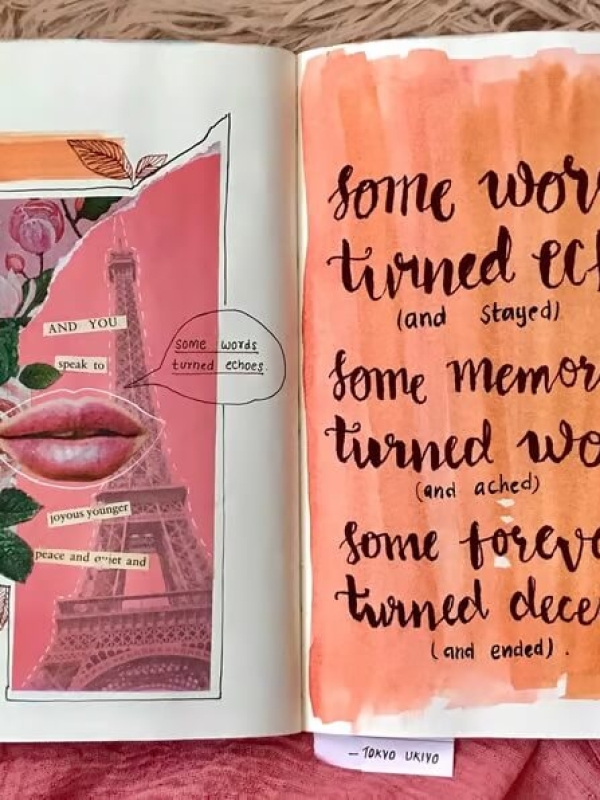 AND YOU
speak to
some words
turned echoes.
joyous younger
peace and quiet and
some wor
turned ech
(and stayed)
some memor
turned wo
(and ached)
some foreve
turned dece
(and ended).
— TOKYO UKIYO